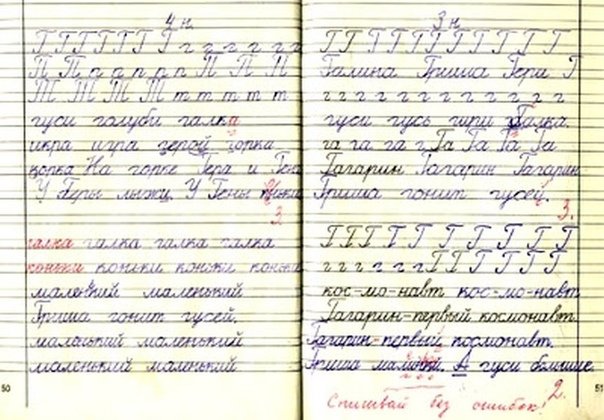 4 н.
Г Г Г Г Г Г Г г г г г г г г
П П п п п п П П П
Т Т Т Т т т т т т
гуси голуби галка
икра игра герой горка
горка На горке Гера и Гена
У Геры лыжи У Гены коньки
3
галка галка галка галка
коньки коньки коньки коньки
маленький маленький
Гриша гонит гусей.
маленький маленький
маленький маленький
50
3 н.
Г Г Г Г Г Г Г Г Г Г
Галина Гриша Гери Г
г г г г г г г г г г г г
гуси гусь гири Галка.
га га га га г Га Га Га Га
Гагарин Гагарин Гагарин
Гриша гонит гусей.
3.
Г Г Г Г Г Г Г Г Г Г
г г г г г г Г Г Г Г Г Г
кос-мо-навт кос-мо-навт
Гагарин-первый космонавт.
Гагарин-первый космонавт.
Гриша А гуси большие.
2.
Списывай без ошибок.
51